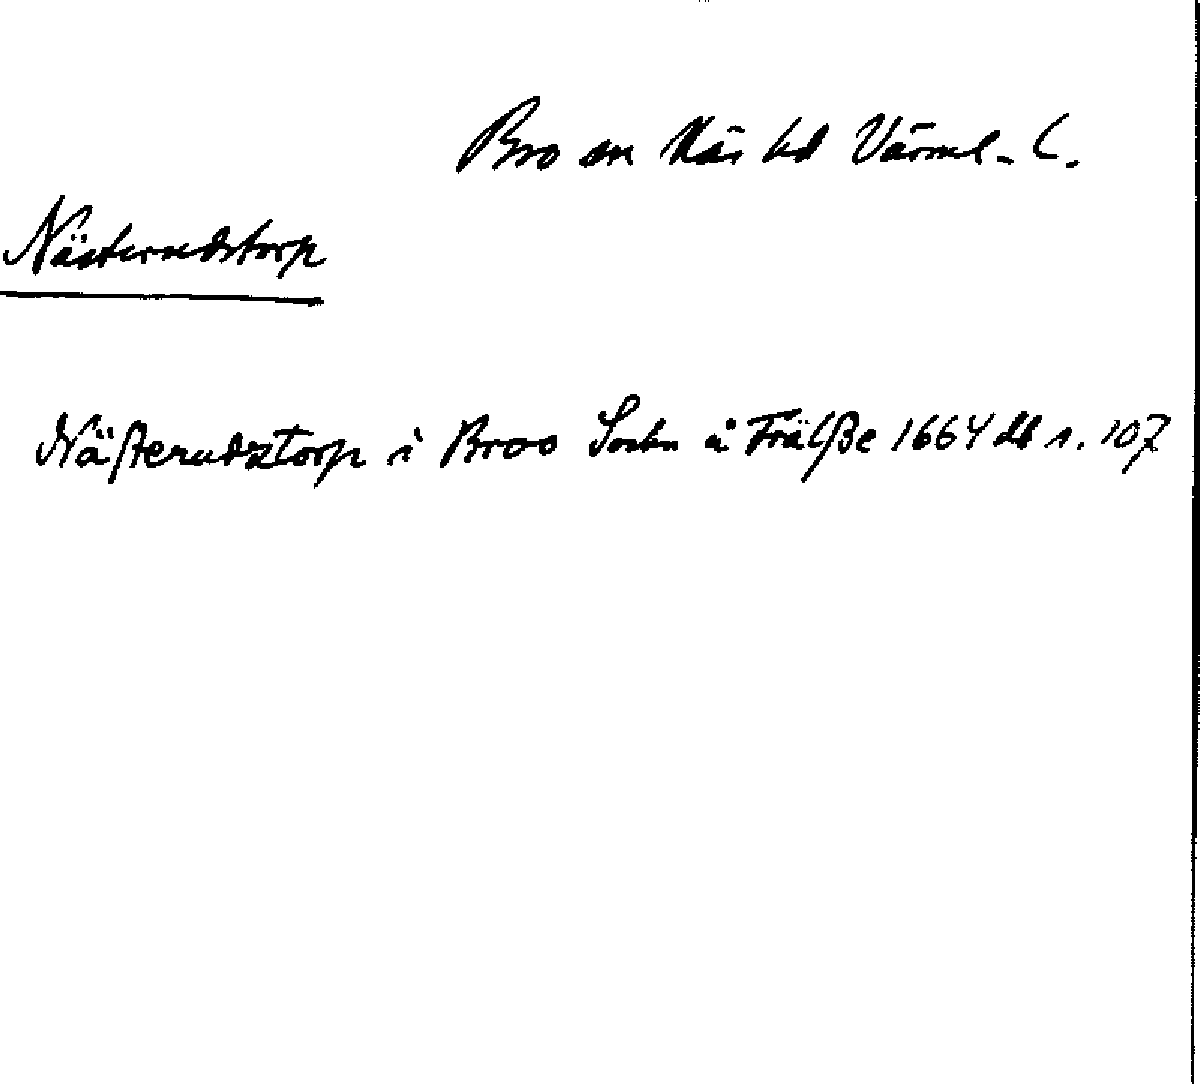 Bro sn Näs hd Värml. l.
Nästerudstorp
Näſterudztorp i Broo Sochn ä Frälße 1664 db s. 107